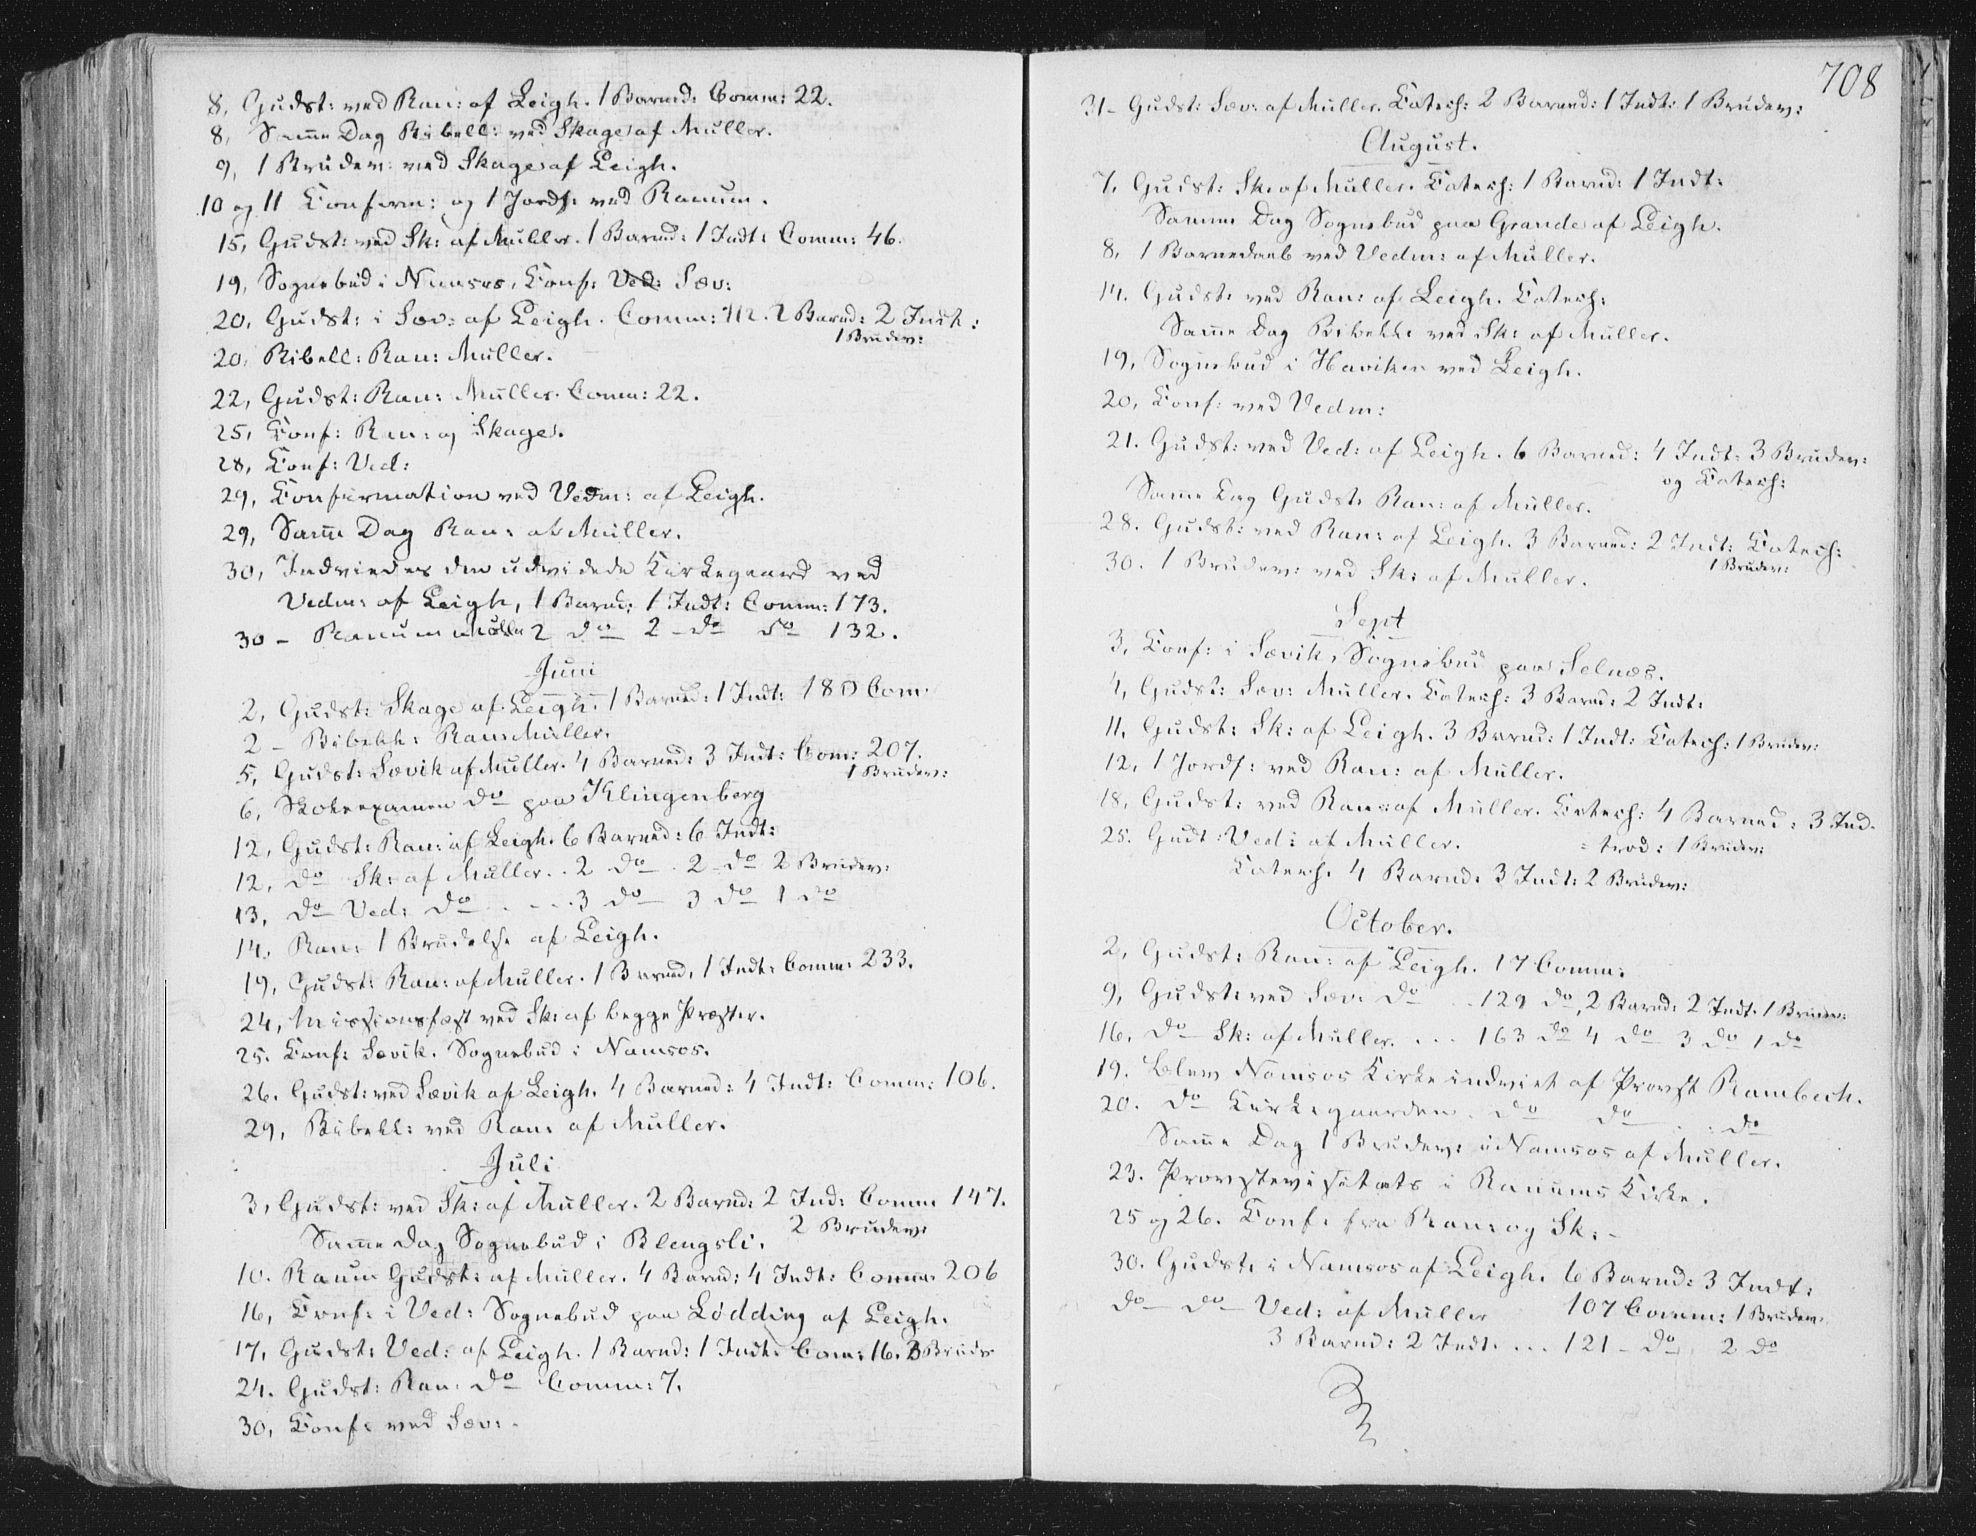 8, Gudst: ved Ran: af Leigh. 1 Barned: Comm: 22.
8, Samme Dag Bibell: ved Skage af Müller.
9, 1 Brudev: ved Skage af Leigh.
10 og 11 Konfirm: og 1 Jordf: ved Ranum.
15, Gudst: ved Sk: af Müller. 1 Barnd: 1 Indt: Comm: 46.
19, Sognebud i Namsos, Conf: Ved: Sæv:
20, Gudst: i Sæv: af Leigh. Comm: 2 Barnd: 2 Indt:
1 Brudev:
20, Bibell: Ran: Müller.
22, Gudst: Ran: Müller. Comm: 22.
25, Conf: Ran: og Skage.
28, Conf: Ved:
29, Confirmation ved Vedm: af Leigh.
29, Samme Dag Ran: af Müller.
30, Indviedes den udvidede Kirkegaard ved
Vedm: af Leigh, 1 Barnd: 1 Indt: Comm: 173.
30 - Ranum Müller 2 do 2 - do do 132.
Juni
2, Gudst: Skage af Leigh. 1 Barned: 1 Indt: 180 Com.
2 - Bibell: Ran: Müller.
5, Gudst: Sævik af Müller. 4 Barned: 3 Indt: Com: 207.
1 Brudev:
6, Skoleexamen do paa Klingenberg
12, Gudst: Ran: af Leigh. 6 Barned: 6 Indt:
12, do Sk: af Müller. . 2 do . 2 - do 2 Brudev:
13, do Ved: do . - . . 3 do 3 do 1 do
14, Ran: 1 Brudelse af Leigh.
19, Gudst: Ran: af Müller. 1 Barned, 1 Indt: Comm: 233.
24, Missionsfest ved Sk: af begge Præster.
25. Conf: Sævik. Sognebud i Namsos.
26. Gudst: ved Sævik af Leigh. 4 Barned: 4 Indt: Comm: 106.
29, Bibell: ved Ran: af Müller.
Juli
3, Gudst: ved Sk: af Müller. 2 Barnd: 2 Ind: Comm: 147.
2 Brudev:
Samme Dag Sognebud i Blengsli.
10. Ranum Gudst: af Müller. 4 Barnd: 4 Indt: Comm: 206
16, Conf: i Ved: Sognebud paa Lødding af Leigh.
17, Gudst: Ved: af Leigh. 1 Barnd: 1 Indt: Com: 16. 3 Brudv
24. Gudst: Ran: do Comm: 7.
30, Conf: ved Sæv: -
708
31 - Gudst: Sæv: af Müller. Catech: 2 Barned: 1 Indt: 1 Brudev:
August.
7, Gudst: Sk: af Müller. Catech: 1 Barnd: 1 Indt:
Samme Dag Sognebud paa Grande af Leigh.
8, 1 Barnedaab ved Vedm: af Müller.
14. Gudst: ved Ran: af Leigh. Catech:
Samme Dag Bibell: ved Sk: af Müller.
19, Sognebud i Haviken ved Leigh.
20, Conf: ved Vedm:
21. Gudst: ved Ved: af Leigh. 6 Barned: 4 Indt: 3 Brudev:
og Catech:
Samme Dag Gudst: Ran: af Müller.
28. Gudst: ved Ran: af Leigh. 3 Barned: 2 Indt: Catech:
1 Brudev:
30. 1 Brudev: ved Sk: af Müller.
Sept
3, Conf: i Sævik, Sognebud paa Selnæs.
4, Gudst: Sæv: Müller. Catech: 3 Barnd: 2 Indt:
11, Gudst: Sk: af Leigh. 3 Barnd: 1 Indt: Catech: 1 Brudev:
12, 1 Jordf: ved Ran: af Müller.
18, Gudst: ved Ran: af Müller. Catech: 4 Barned: 3 Ind-
25. Gudt: Ved: af Müller. = trod: 1 Brudev:
Catech. 4 Barnd. 3 Indt: 2 Brudev:
October.
2, Gudst: Ran: af Leigh. 17 Comm:
9, Gudst: ved Sæv: do . . 129 do, 2 Barnd: 2 Indt. 1 Brudev:
16, do Sk: af Müller. . . . 163 do 4 do 3 do 1 do
19. Blev Namsos Kirke indviet af Provst Rambech.
20. do Kirkegaarden. do do . : do
Samme Dag 1 Brudev: i Namsos af Müller.
23. Provstevisitats i Ranums Kirke.
25 og 26. Conf: fra Ran: og Sk: -
30. Gudst: i Namsos af Leigh. 6 Barnd: 3 Indt:
do - do Ved: af Müller 107 Comm: 1 Brudev.
3 Barnd: 2 Indt. . . . 121 - do, 2 do